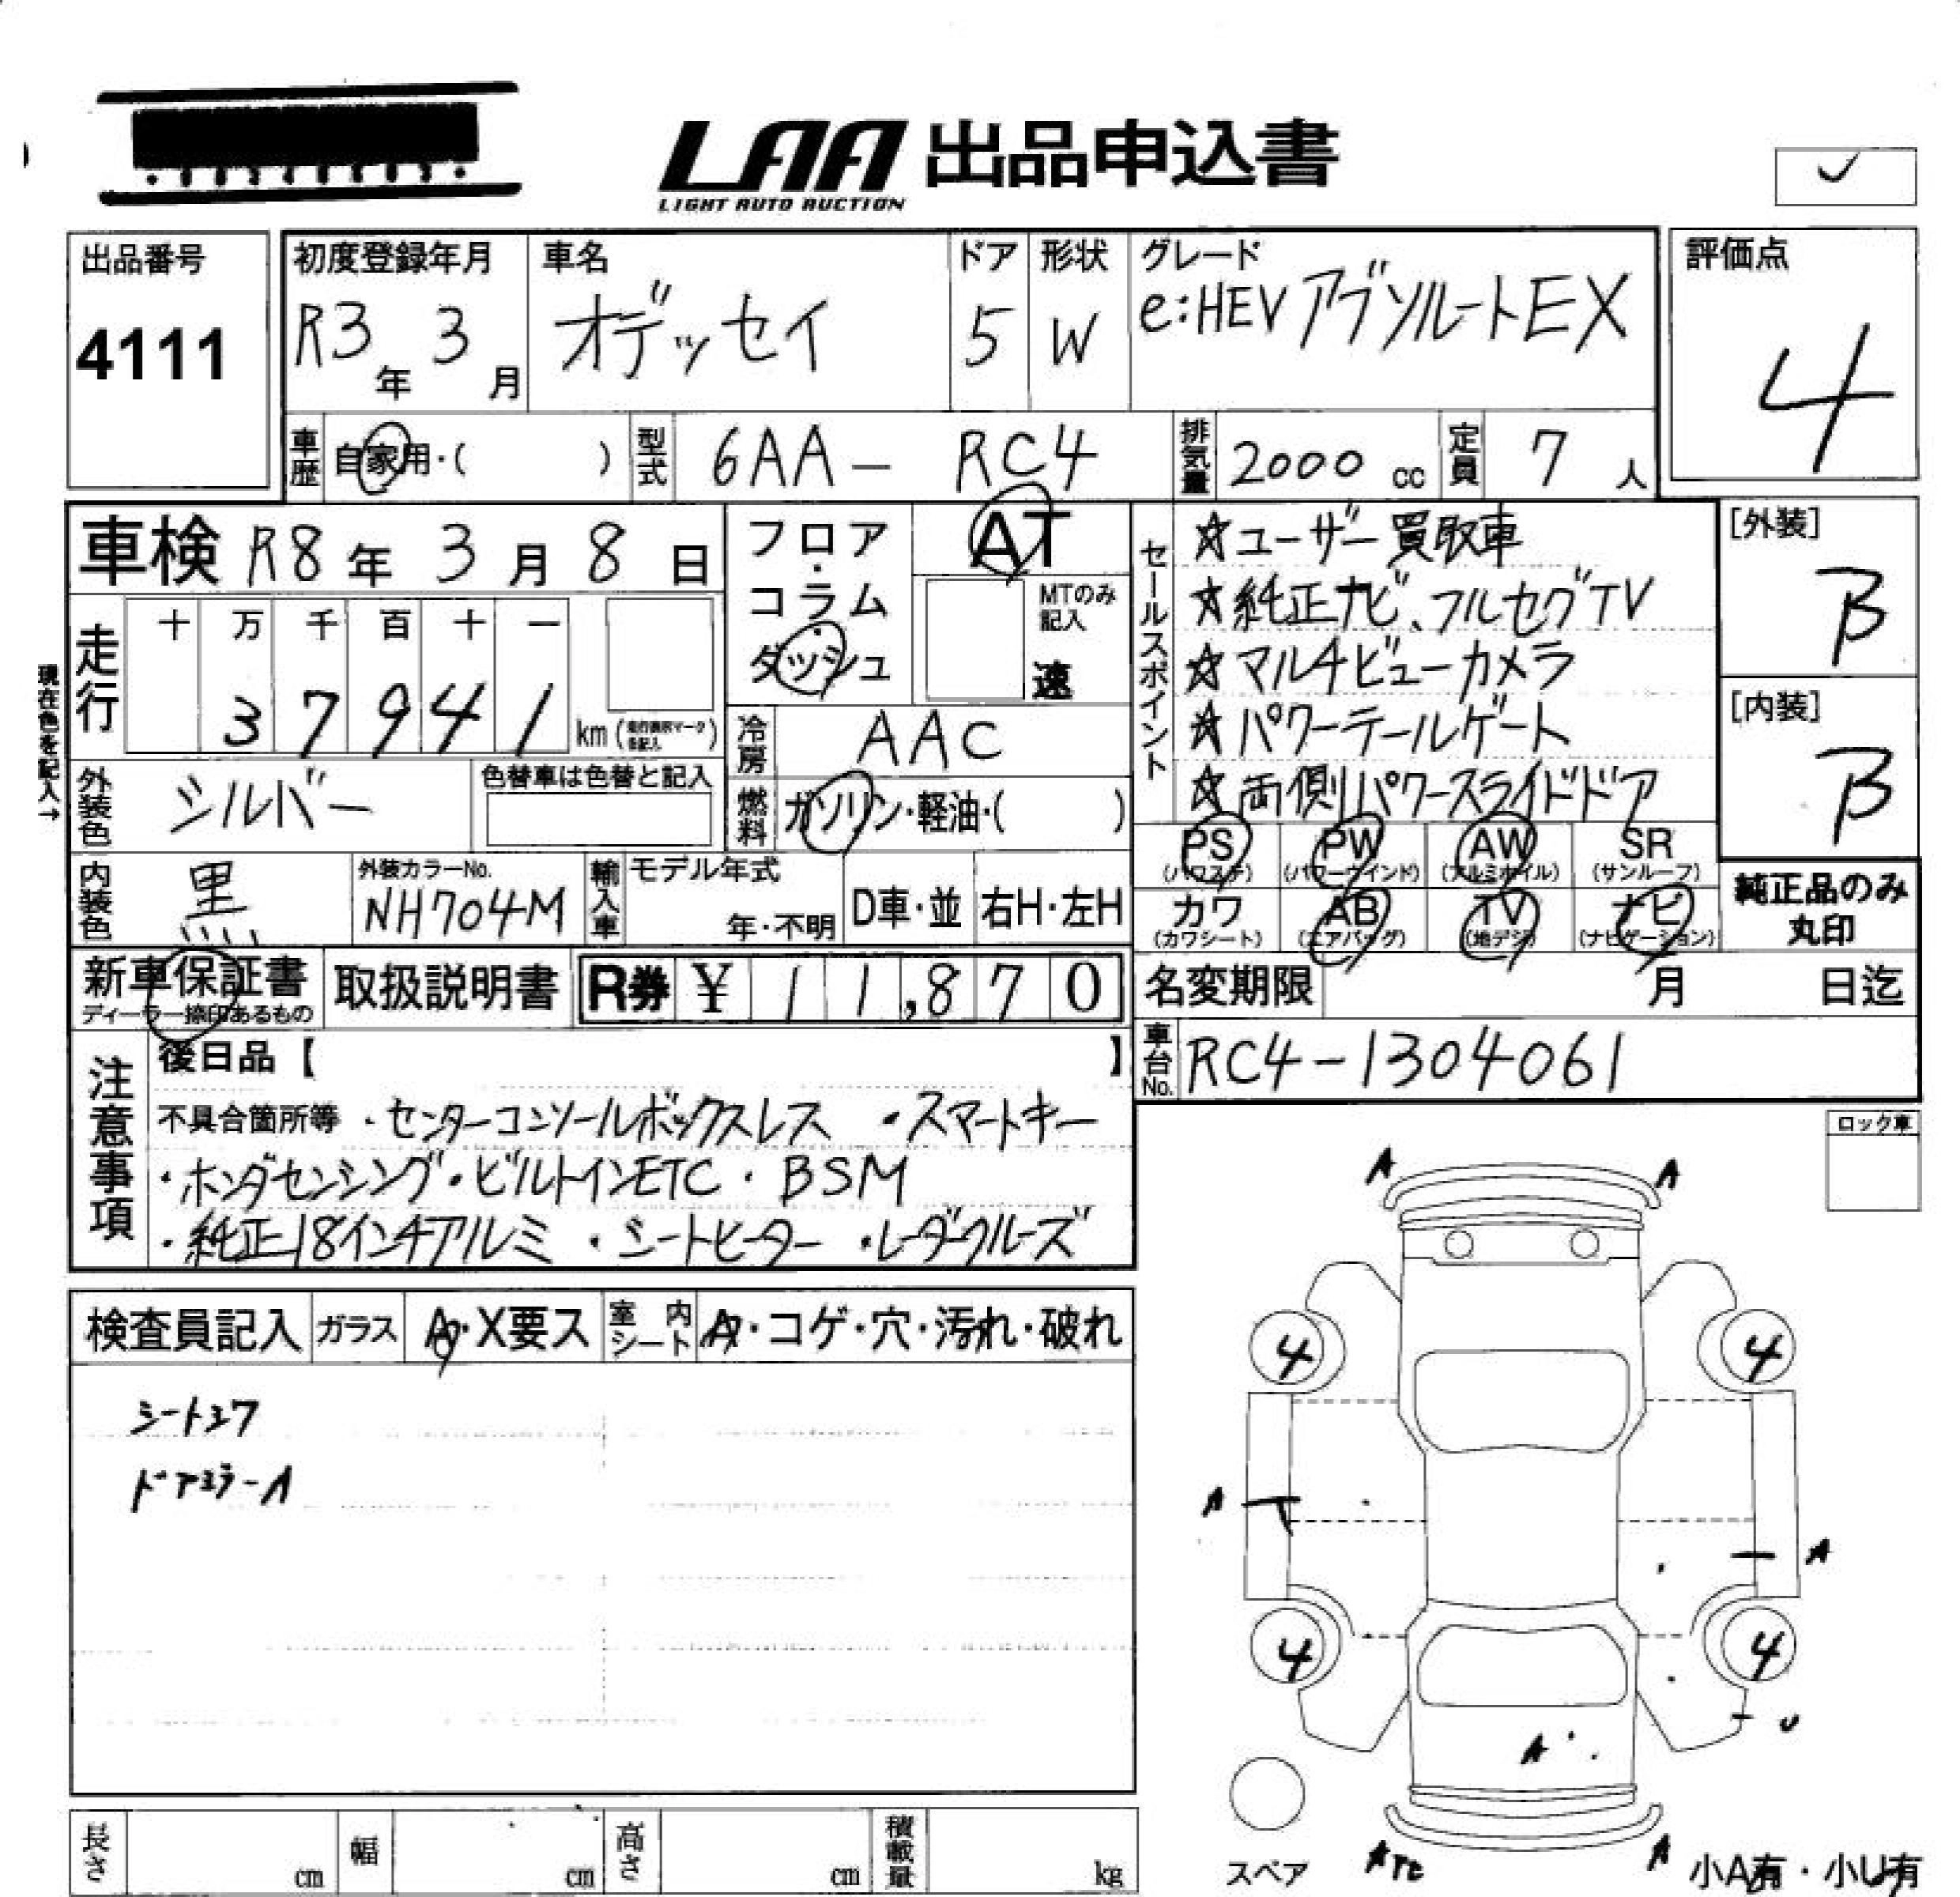 LAA 出品申込書
LIGHT AUTO AUCTION
✓
出品番号
4111
初度登録年月
R3年 3月
車名
オデッセイ
ドア
5
形状
W
グレード
e:HEV アブソルートEX
評価点
4
車歴 自家用・( )
型式 6AA - RC4
排気量 2000 cc
定員 7 人
車検 R8年 3月 8日
フロア・コラム・ダッシュ
AT
MTのみ記入
速
セールスポイント
☆ユーザー買取車
☆純正ナビ、フルセグTV
☆マルチビューカメラ
☆パワーテールゲート
☆両側パワースライドドア
[外装]
B
[内装]
B
現在色を記入→
走行
十 万 千 百 十 一
3 7 9 4 1 km
冷房 AAC
外装色 シルバー
色替車は色替と記入
燃料 ガソリン・軽油・( )
PS (パワステ)
PW (パワーウインド)
AW (アルミホイル)
SR (サンルーフ)
カワ (カワシート)
AB (エアバッグ)
TV (地デジ)
ナビ (ナビゲーション)
純正品のみ丸印
内装色 黒
外装カラーNo.
NH704M
輸入車 モデル年式
年・不明
D車・並
右H・左H
新車保証書
ディーラー捺印あるもの
取扱説明書
R券 ¥ 11,870
名変期限 月 日迄
車台No. RC4-1304061
注意事項
後日品【 】
不具合箇所等 ・センターコンソールボックスレス ・スマートキー
・ホンダセンシング・ビルトインETC・BSM
・純正18インチアルミ ・シートヒーター ・レーダクルーズ
ロック車
検査員記入
ガラス A・X要ス
室内シート A・コゲ・穴・汚れ・破れ
ドアミラーA
A A
4 4
A
A
4 4
U
A
スペア
A
小A有・小U有
長さ cm
幅 cm
高さ cm
積載量 kg